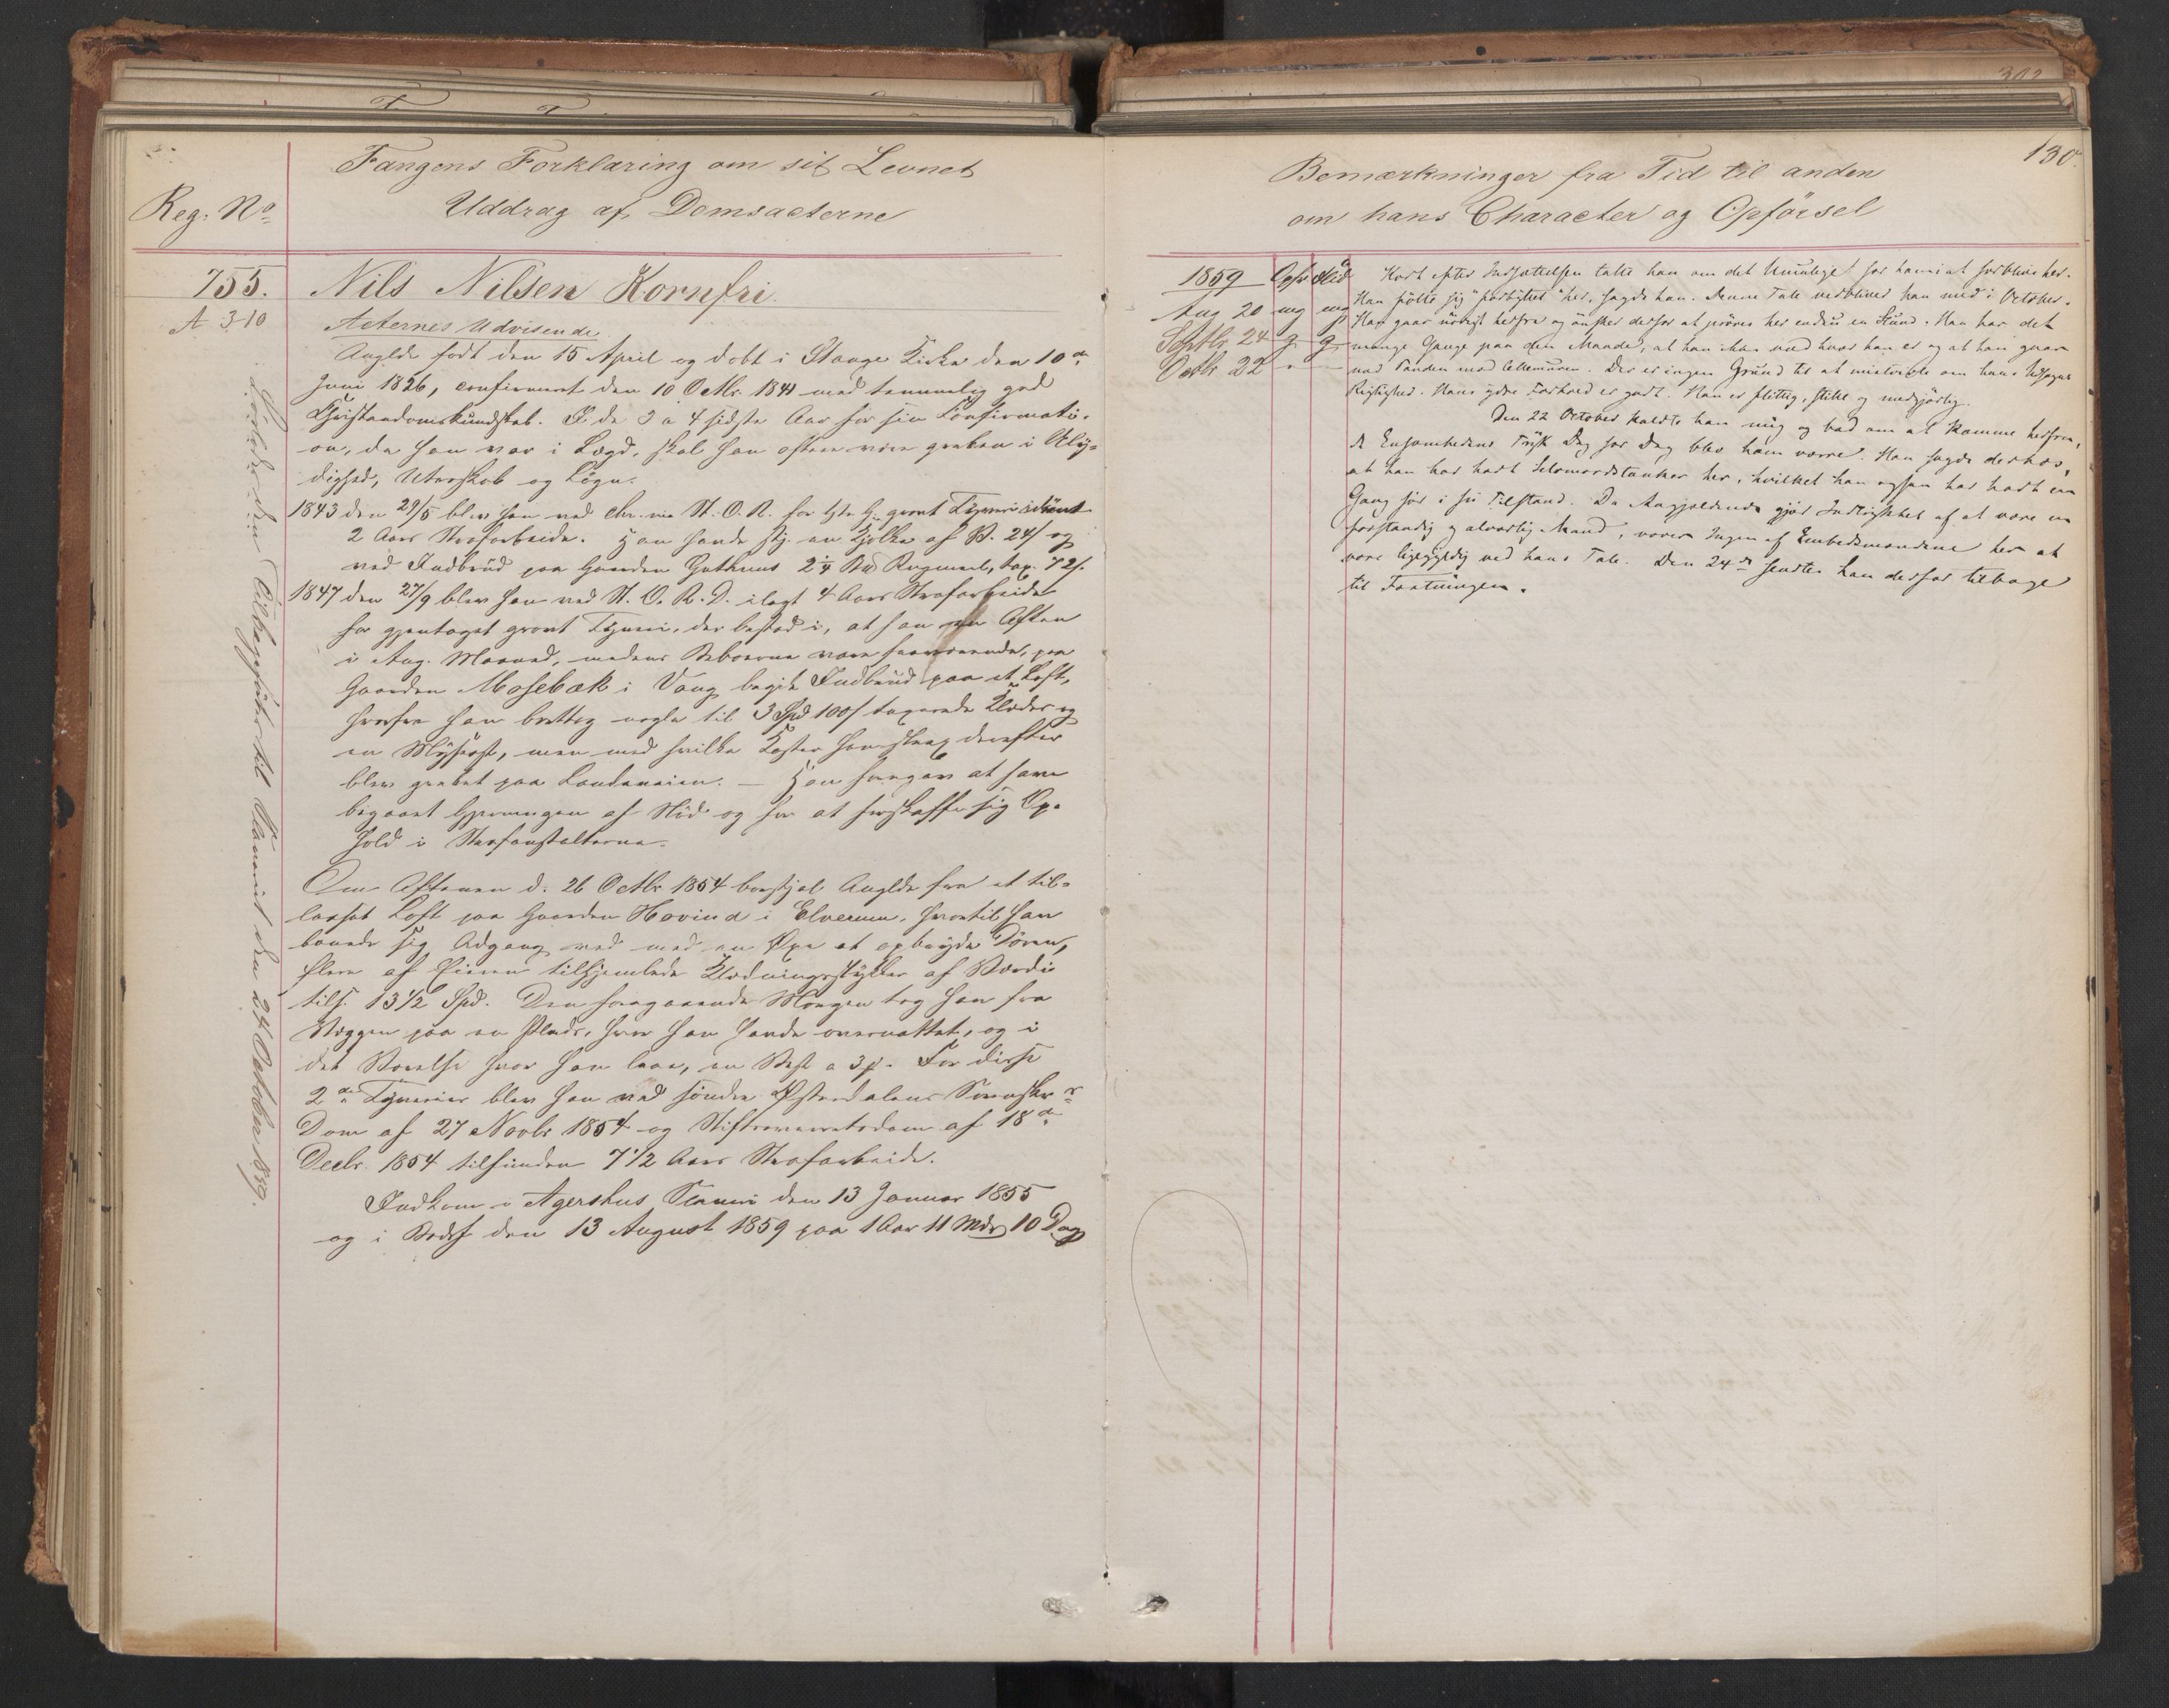 Reg. No
Fangens Forklaring om sit Levnet
Uddrag af Domsacterne
755.
A 3-10
Nils Nilsen Kornfri.
Acternes Udvisende
Anglde født den 15 April og døbt i Stange Kirke den 10de
Juni 1826, confirmeret den 10 Octbr. 1841 med temmelig god
Christendomskundskab. I de 3 a 4 sidste Aar før sin Confirmati-
on, da han var i Lægd, skal han oftere være greben i Uly-
dighed, Utroskab og Løgn.
1843 den 29/5 blev han ved Chr.nia St. O. R. for 1ste G. grovt Tyveri idømt
2 Aars Strafarbeide. Han havde stj. en Kjølke af V. 24 s og
ved Indbrud paa Gaarden Guthuus 2 1/4 Rugmeel, tax. 72 s.
1847 den 27/9 blev han ved St. O. R. D. ilagt 4 Aars Strafarbeide
for gjentaget grovt Tyveri, der bestod i, at han en Aften
i Aug. Maaned, medens Beboerne vare fraværende, paa
Gaarden Mosebæk i Vang begik Indbrud paa et Loft,
hvorfra han borttog nogle til 3 Spd 100 s taxerede Klæder og
en Mysost, men med hvilke Koster han strax derefter
blev grebet paa Landeveien. — Han foregav at have
begaaet Gjerningen af Nød og for at forskaffe sig Op-
hold i Strafanstalterne.
Om Aftenen d. 26 Octbr 1854 bortstjal Anglde fra et til-
laaset Loft paa Gaarden Hovind i Elverum, hvortil han
banede sig Adgang ved med en Øxe at opbryde Døren,
flere af Eieren tilhjemlede Klædningsstykker af Værdi
tils. 13 1/2 Spd. Den foregaaende Morgen tog han fra
Væggen paa en Plads, hvor han havde overnattet, og i
det Værelse hvor han laae, en Vest a 3 s. For disse
2de Tyverier blev han ved søndre Østerdalens Sorenskr.
Dom af 27 Novbr 1854 og Stiftsoverretsdom af 18de
Decbr. 1854 tilfunden 7 1/2 Aars Strafarbeide.
Indkom i Agershus Slaveri den 13 Januar 1855
og i Bodsf. den 13 August 1859 paa 1 Aar 11 Mdr 10 Dage
den Tilbageført til Slaveriet den 24 October 1859.
130.
Bemærkninger fra Tid til anden
om hans Character og Opførsel
1859 Opf Flid
Aug 20 mg mg
Septbr. 24 g g
Octbr 22 " —
Kort efter Indsættelsen talte han om det Umulige for ham i at forblive her.
Han følte sig "forbyttet" her, sagde han. Denne Tale vedbliver han med i October.
Han gaar nødigt herfra og ønsker derfor at prøves her endnu en Stund. Han har det
mange Gange paa den Maade, at han ikke veed hvor han er og at han gaar
med Panden mod Cellemuren. Der er ingen Grund til at mistvivle om hans Udsagns
Rigtighed. Hans ydre Forhold er godt. Han er flittig, stille og medgjørlig.
Den 22 October kaldte han mig og bad om at komme herfra,
da Ensomhedens Tryk Dag for Dag blev ham værre. Han sagde derhos,
at han har havt Selvmordstanker her, hvilket han ogsaa har havt en
Gang før i fri Tilstand. Da Angjældende gjør Indtrykket af at være en
forstandig og alvorlig Mand, vover Ingen af Embedsmændene her at
være ligegyldig ved hans Tale. Den 24de sendtes han derfor tilbage
til Fæstningen.